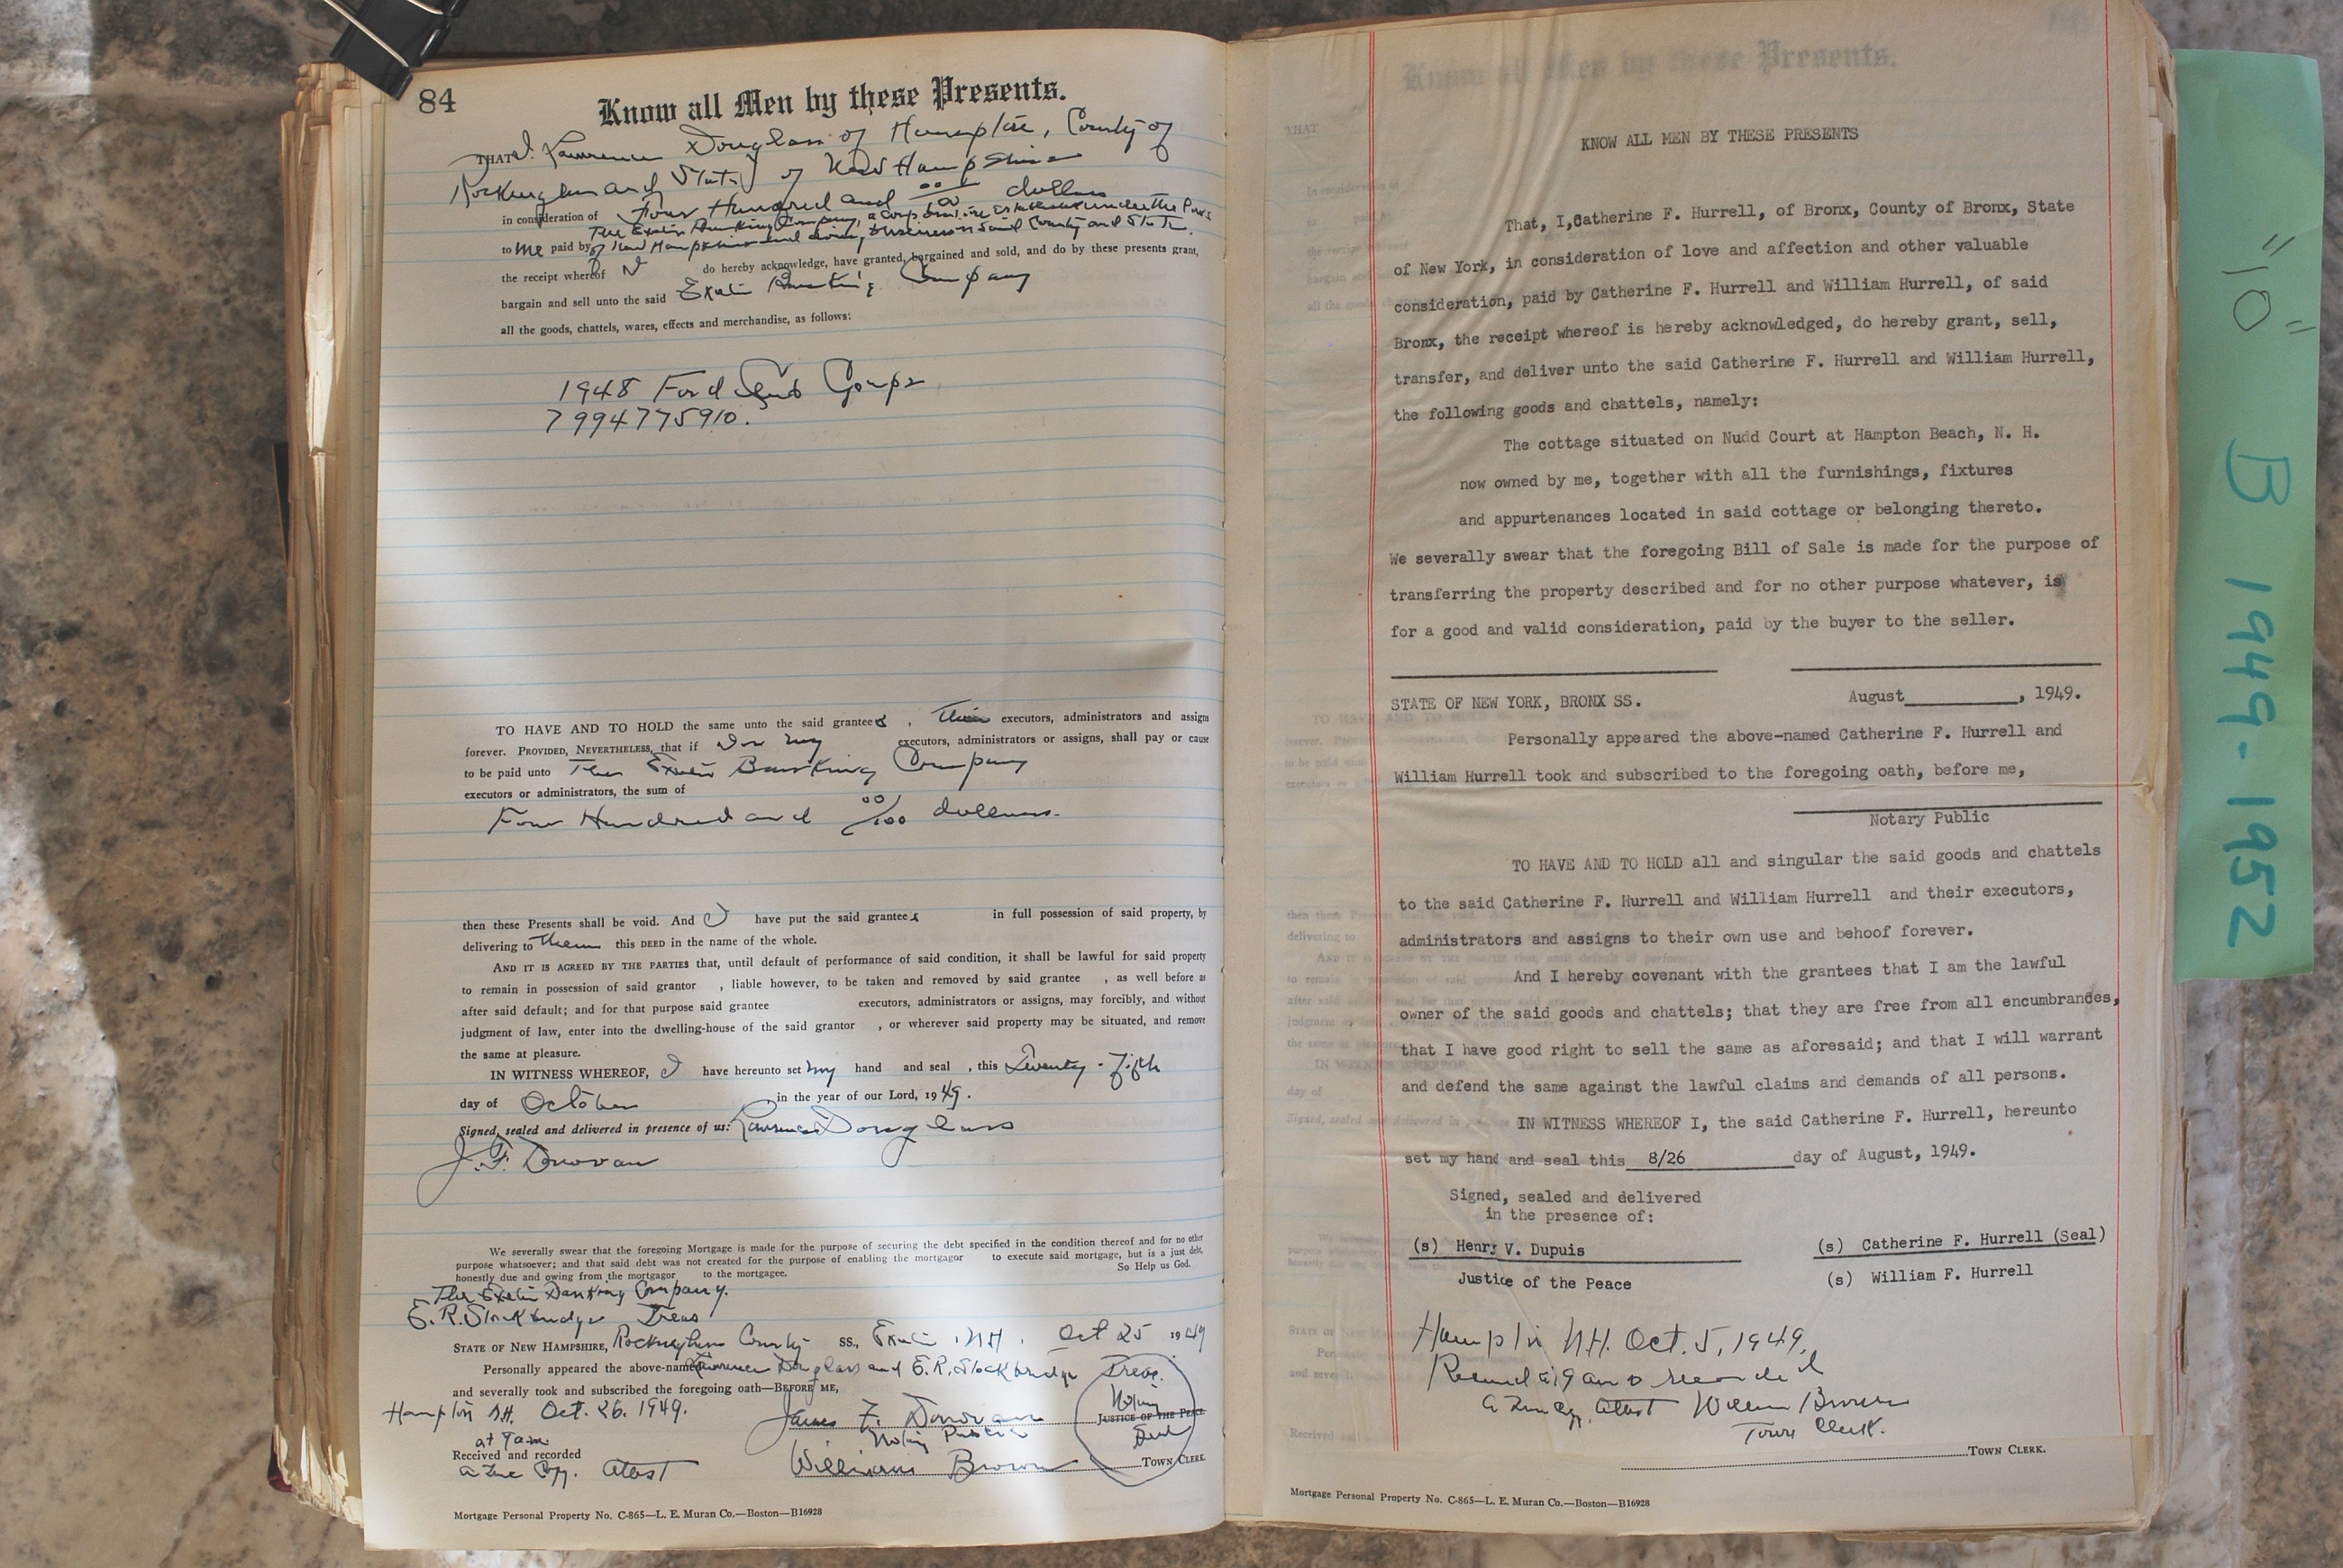 84
Know all Men by these Presents.
THAT I. Lawrence Douglass of Hampton, County of
Rockingham and State of New Hampshire
in consideration of Four Hundred and 00/100 dollars
The Exeter Banking Company, a corporation established under the laws
to me paid by of New Hampshire and doing business in said County and State.
the receipt whereof I do hereby acknowledge, have granted, bargained and sold, and do by these presents grant,
bargain and sell unto the said Exeter Banking Company
all the goods, chattels, wares, effects and merchandise, as follows:
1948 Ford Coupe
7994775910.
TO HAVE AND TO HOLD the same unto the said grantees, their executors, administrators and assigns
forever. PROVIDED, NEVERTHELESS, that if I or my executors, administrators or assigns, shall pay or cause
to be paid unto The Exeter Banking Company
executors or administrators, the sum of
Four Hundred and 00/100 dollars.
then these Presents shall be void. And I have put the said grantees in full possession of said property, by
delivering to them this DEED in the name of the whole.
AND IT IS AGREED BY THE PARTIES that, until default of performance of said condition, it shall be lawful for said property
to remain in possession of said grantor , liable however, to be taken and removed by said grantee , as well before as
after said default; and for that purpose said grantee executors, administrators or assigns, may forcibly, and without
judgment of law, enter into the dwelling-house of the said grantor , or wherever said property may be situated, and remove
the same at pleasure.
IN WITNESS WHEREOF, I have hereunto set my hand and seal , this Twenty-Fifth
day of October in the year of our Lord, 1949.
Signed, sealed and delivered in presence of us: Lawrence Douglass
J. F. Donovan
We severally swear that the foregoing Mortgage is made for the purpose of securing the debt specified in the condition thereof and for no other
purpose whatsoever; and that said debt was not created for the purpose of enabling the mortgagor to execute said mortgage, but is a just debt,
honestly due and owing from the mortgagor to the mortgagee. So Help us God.
The Exeter Banking Company.
E. R. Stockbridge Treas
STATE OF NEW HAMPSHIRE, Rockingham County SS., Exeter, N.H. Oct 25 1949
Personally appeared the above-named Lawrence Douglass and E. R. Stockbridge Treas.
and severally took and subscribed the foregoing oath—BEFORE ME,
Hampton N.H. Oct. 26. 1949. James F. Donovan Notary JUSTICE OF THE PEACE
at 9 a.m. Notary Public Seal
Received and recorded
a True Copy. Attest William Brown TOWN CLERK
Mortgage Personal Property No. C-865—L. E. Muran Co.—Boston—B16928
KNOW ALL MEN BY THESE PRESENTS
That, I,Catherine F. Hurrell, of Bronx, County of Bronx, State
of New York, in consideration of love and affection and other valuable
consideration, paid by Catherine F. Hurrell and William Hurrell, of said
Bronx, the receipt whereof is hereby acknowledged, do hereby grant, sell,
transfer, and deliver unto the said Catherine F. Hurrell and William Hurrell,
the following goods and chattels, namely:
The cottage situated on Nudd Court at Hampton Beach, N. H.
now owned by me, together with all the furnishings, fixtures
and appurtenances located in said cottage or belonging thereto.
We severally swear that the foregoing Bill of Sale is made for the purpose of
transferring the property described and for no other purpose whatever, is
for a good and valid consideration, paid by the buyer to the seller.
STATE OF NEW YORK, BRONX SS. August , 1949.
Personally appeared the above-named Catherine F. Hurrell and
William Hurrell took and subscribed to the foregoing oath, before me,
Notary Public
TO HAVE AND TO HOLD all and singular the said goods and chattels
to the said Catherine F. Hurrell and William Hurrell and their executors,
administrators and assigns to their own use and behoof forever.
And I hereby covenant with the grantees that I am the lawful
owner of the said goods and chattels; that they are free from all encumbrances,
that I have good right to sell the same as aforesaid; and that I will warrant
and defend the same against the lawful claims and demands of all persons.
IN WITNESS WHEREOF I, the said Catherine F. Hurrell, hereunto
set my hand and seal this 8/26 day of August, 1949.
Signed, sealed and delivered
in the presence of:
(s) Henry V. Dupuis (s) Catherine F. Hurrell (Seal)
Justice of the Peace (s) William F. Hurrell
Hampton N.H. Oct. 5, 1949.
Received at 9 am & recorded
a True Copy, Attest William Brown
Town Clerk.
TOWN CLERK.
Mortgage Personal Property No. C-865—L. E. Muran Co.—Boston—B16928
"10" B 1949-1952